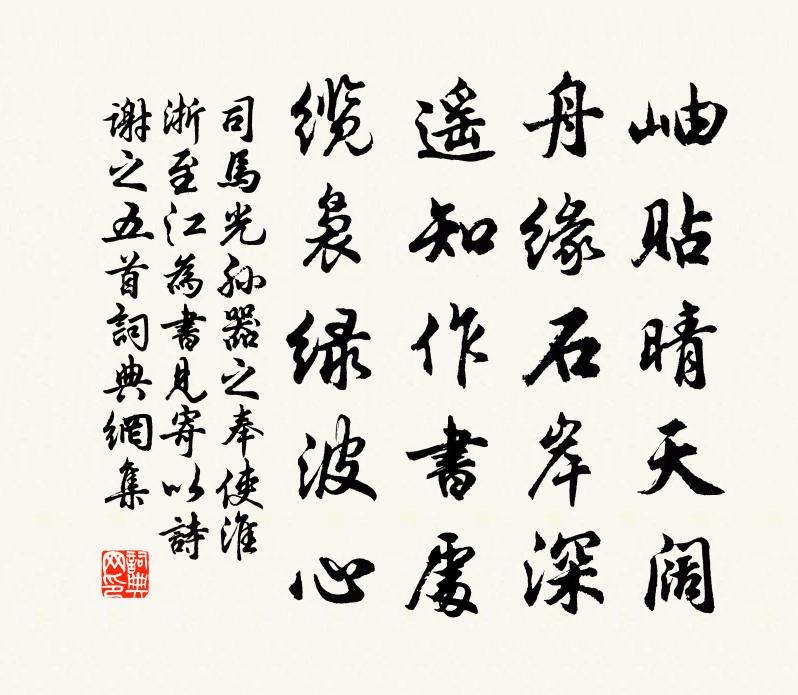 岫贴晴天阔
舟缘石岸深
遥知作書處
缆裊绿波心
司馬光孙器之奉使淮
浙至江為書見寄以詩
謝之五首詞典網集
詞典
网印